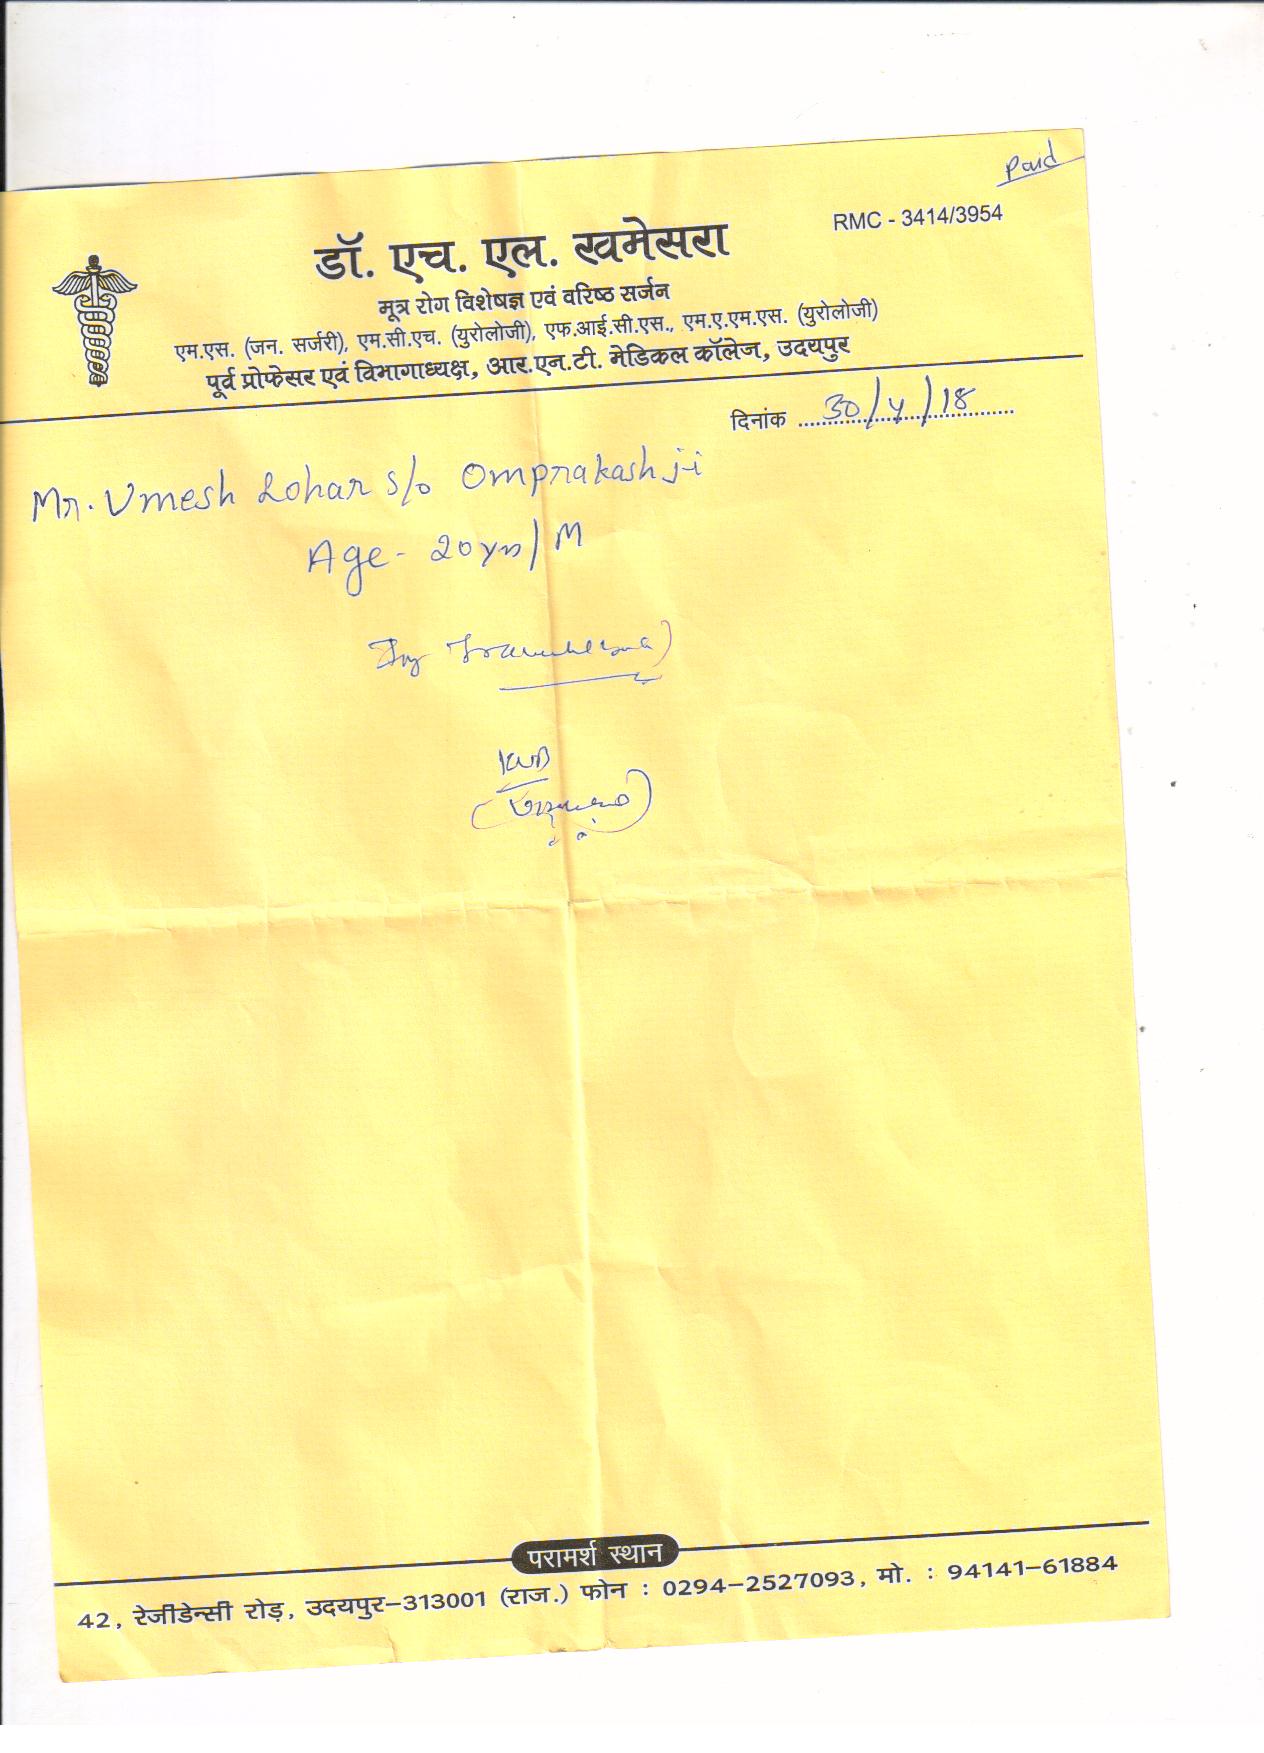 Paid
RMC - 3414/3954
डॉ. एच. एल. खमेसरा
मूत्र रोग विशेषज्ञ एवं वरिष्ठ सर्जन
एम.एस. (जन. सर्जरी), एम.सी.एच. (युरोलोजी), एफ.आई.सी.एस., एम.ए.एम.एस. (युरोलोजी)
पूर्व प्रोफेसर एवं विभागाध्यक्ष, आर.एन.टी. मेडिकल कॉलेज, उदयपुर
दिनांक 30/4/18
Mr. Umesh Lohar s/o Omprakash ji
Age - 20 yrs/M
KUB
परामर्श स्थान
42, रेजीडेन्सी रोड़, उदयपुर-313001 (राज.) फोन : 0294-2527093, मो. : 94141-61884